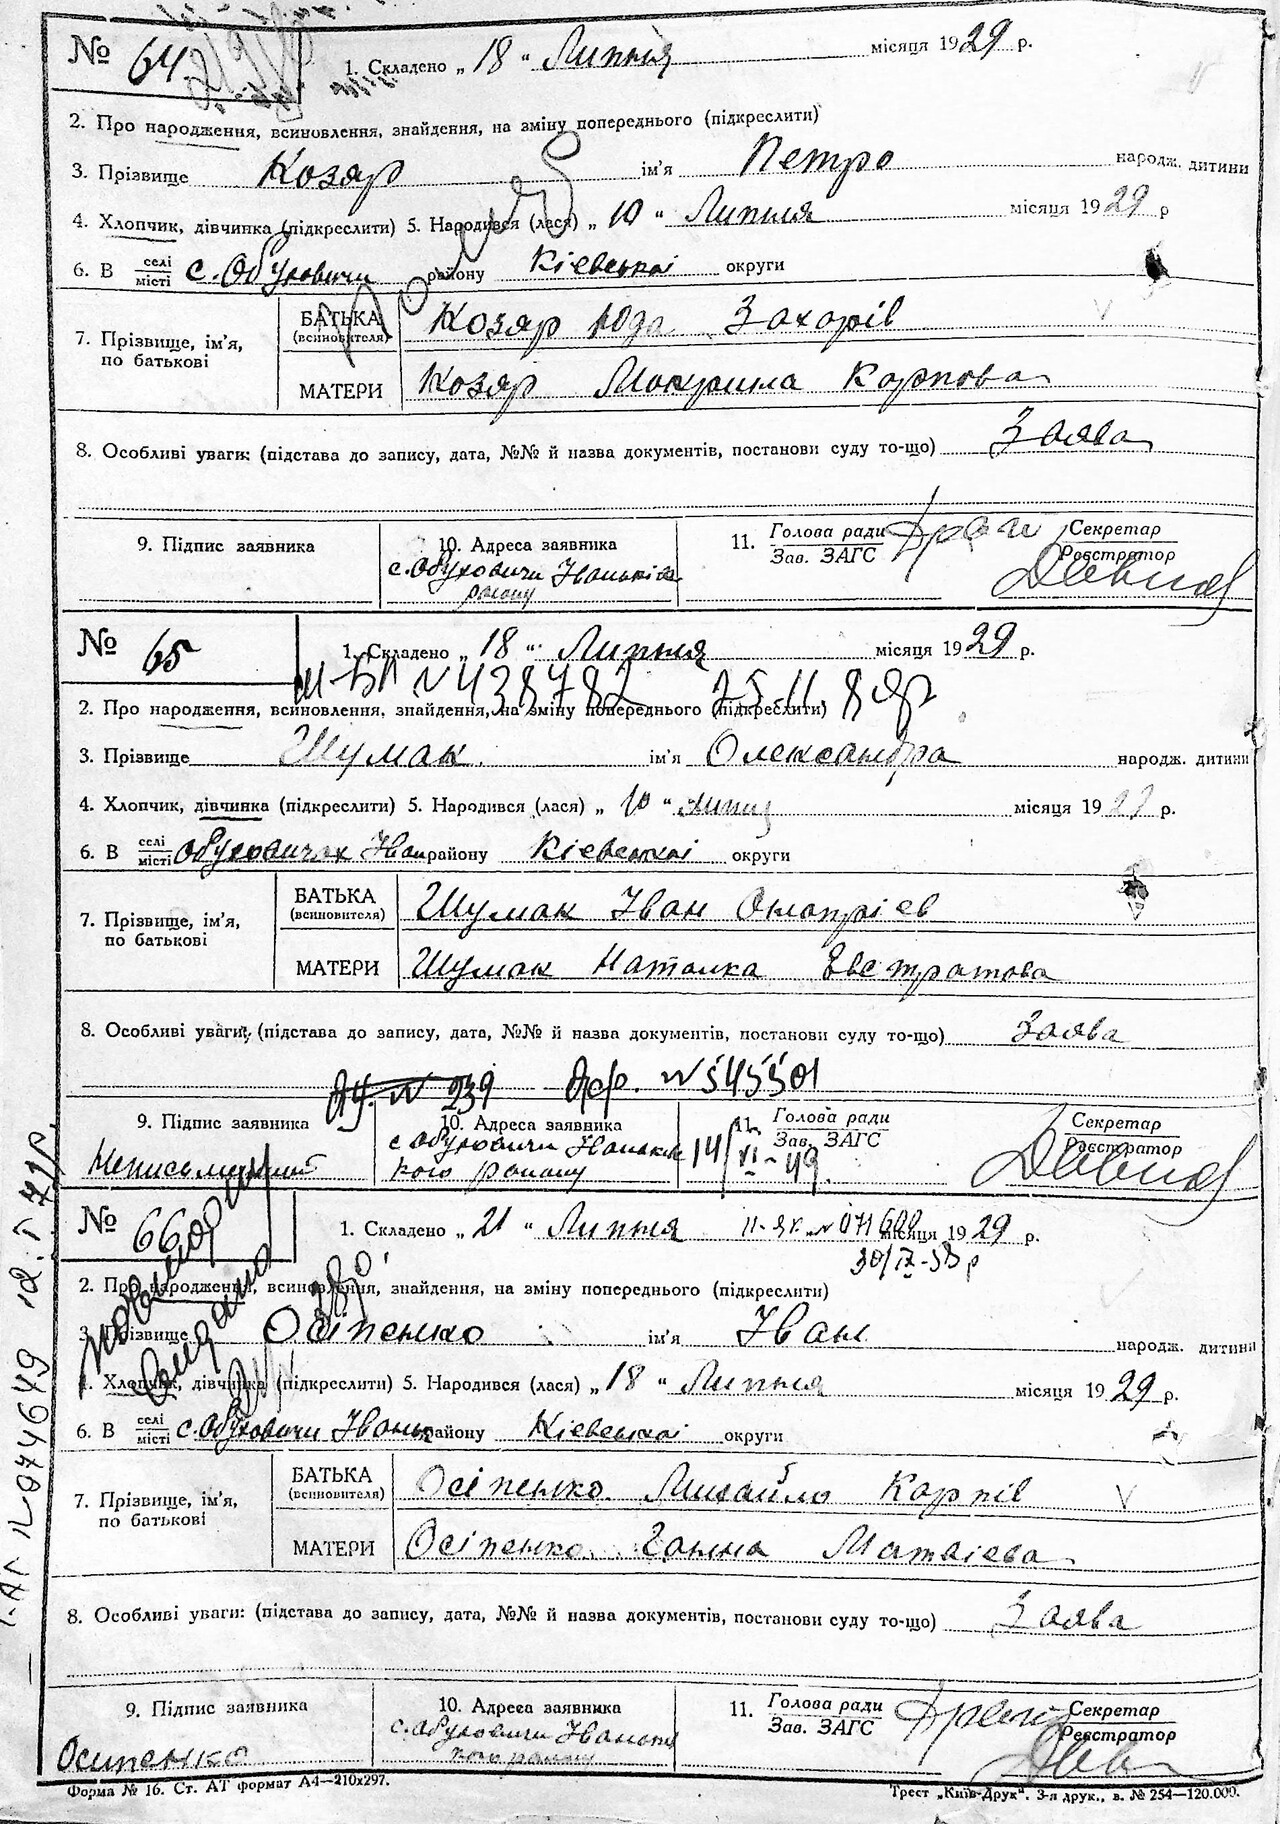 № 64
1. Складено „ 18 “ Липня місяця 1929 р.
2. Про народження, всиновлення, знайдення, на зміну попереднього (підкреслити)
3. Прізвище Козяр ім'я Петро народж. дитини
4. Хлопчик, дівчинка (підкреслити) 5. Народився (лася) „ 10 “ Липня місяця 1929 р
6. В селі місті с. Обуховичи району Кіевськоі округи
7. Прізвище, ім'я, по батькові
БАТЬКА (всиновителя) Козяр Юда Захарів
МАТЕРИ Козяр Макрина Карпова
8. Особливі уваги: (підстава до запису, дата, №№ й назва документів, постанови суду то-що) Заява
9. Підпис заявника
10. Адреса заявника
с. Обуховичи
району
11. Голова ради
Зав. ЗАГС
Секретар
Реєстратор
№ 65
1. Складено „ 18 “ Липня місяця 1929 р.
2. Про народження, всиновлення, знайдення, на зміну попереднього (підкреслити)
3. Прізвище Шумак ім'я Олександра народж. дитини
4. Хлопчик, дівчинка (підкреслити) 5. Народився (лася) „ 10 “ липня місяця 1929 р.
6. В селі місті Обуховичах Іван району Кіевськоі округи
7. Прізвище, ім'я, по батькові
БАТЬКА (всиновителя) Шумак Іван Онопріев
МАТЕРИ Шумак Наталка Евстратова
8. Особливі уваги: (підстава до запису, дата, №№ й назва документів, постанови суду то-що) Заява
№ 239 № 545501
9. Підпис заявника
Неписьменний
10. Адреса заявника
с Обуховичи
кого району
14/XI-49.
Голова ради
Зав. ЗАГС
Секретар
Реєстратор
№ 66
1. Складено „ 21 “ Липня місяця 1929 р.
30/IX-53 р
2. Про народження, всиновлення, знайдення, на зміну попереднього (підкреслити)
3. Прізвище Осіпенко ім'я Іван народж. дитини
4. Хлопчик, дівчинка (підкреслити) 5. Народився (лася) „ 18 “ Липня місяця 1929 р.
6. В селі місті с. Обуховичи Іваньк району Кіевськоі округи
7. Прізвище, ім'я, по батькові
БАТЬКА (всиновителя) Осіпенко Михайло Карпів
МАТЕРИ Осіпенко Ганна Матвіева
8. Особливі уваги: (підстава до запису, дата, №№ й назва документів, постанови суду то-що) Заява
9. Підпис заявника
Осипенко
10. Адреса заявника
с. Обуховичи
кого району
11. Голова ради
Зав. ЗАГС
Секретар
Реєстратор
Форма № 16. Ст. АТ формат А4—210х297.
Трест „Київ-Друк“. 3-я друк., в. № 254—120.000.